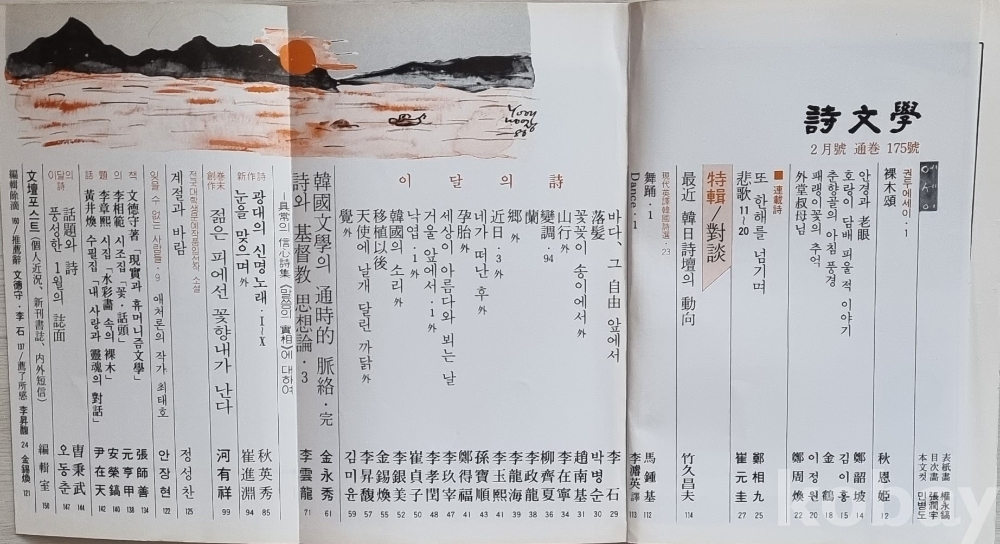 詩文學
2月號 通巻 175號
에세이
권두에세이·1
裸木頌
秋恩姬 12
안경과 老眼
鄭韶坡 14
호랑이 담배 피울 적 이야기
김이홍 15
춘향골의 아침 풍경
金鶴 18
패랭이꽃의 추억
이정원 20
外堂叔母님
鄭周煥 22
■ 連載詩
또 한해를 넘기며
鄭相九 25
悲歌 11~20
崔元圭 27
特輯/對談
最近 韓日詩壇의 動向
竹久昌夫 114
現代英譯韓國詩選·23
舞踊·1
馬鍾基 112
Dance·1
李 英譯 113
이달의 詩
바다, 그 自由 앞에서
李石 29
落髮
박병순 30
꽃꽂이 송이에서 外
趙南基 31
山行 外
李在寧 34
變調·94
柳齊夏 36
蘭
李政龍 38
鄕 外
李龍海 39
近日·3 外
李玉熙 41
네가 떠난 후 外
孫寶順 43
孕胎 外
鄭得福 44
세상이 아름다와 뵈는 날
李玖宰 47
거울 앞에서·1 外
李孝閏 48
낙엽·1 外
崔貞子 50
韓國의 소리 外
李銀美 52
移植以後
李錫煥 55
天使에 날개 달린 까닭 外
李昇馥 57
覺 外
김미윤 59
韓國文學의 通時的 脈絡·完
金永秀 61
詩와 基督敎 思想論·3
李雲龍 71
—具常의 信心詩集 《말씀의 實相》에 대하여
新作詩
광대의 신명노래·Ⅰ~Ⅹ
秋英秀 85
눈을 맞으며 外
崔進淵 94
巻末創作
젊은 피에선 꽃향내가 난다
河有祥 99
전국대학생문예작품입선작·소설
계절과 바람
정성찬 125
잊을 수 없는 사람들·9
애처론의 작가 최태호
안장현 122
話題의 책
文德守著 「現實과 휴머니즘文學」
張師善 134
李相範 시조집 「꽃·話頭」
元亨甲 138
李章熙 시집 「水彩畵 속의 裸木」
安榮鎬 140
黃井煥 수필집 「내 사랑과 靈魂의 對話」
尹在天 142
이달의 詩
話題와 詩
曺秉武 144
풍성한 1월의 誌面
오동춘 147
文壇포스트 (個人近況、新刊書誌、內外短信)
編輯室 150
編輯餘滴 160/推薦辭 文德守·李石 137/薦了所感 李昇馥 24 金錫煥 121
表紙畵 權永鎬
目次畵 張潤宇
本文컷 민병도
kobay